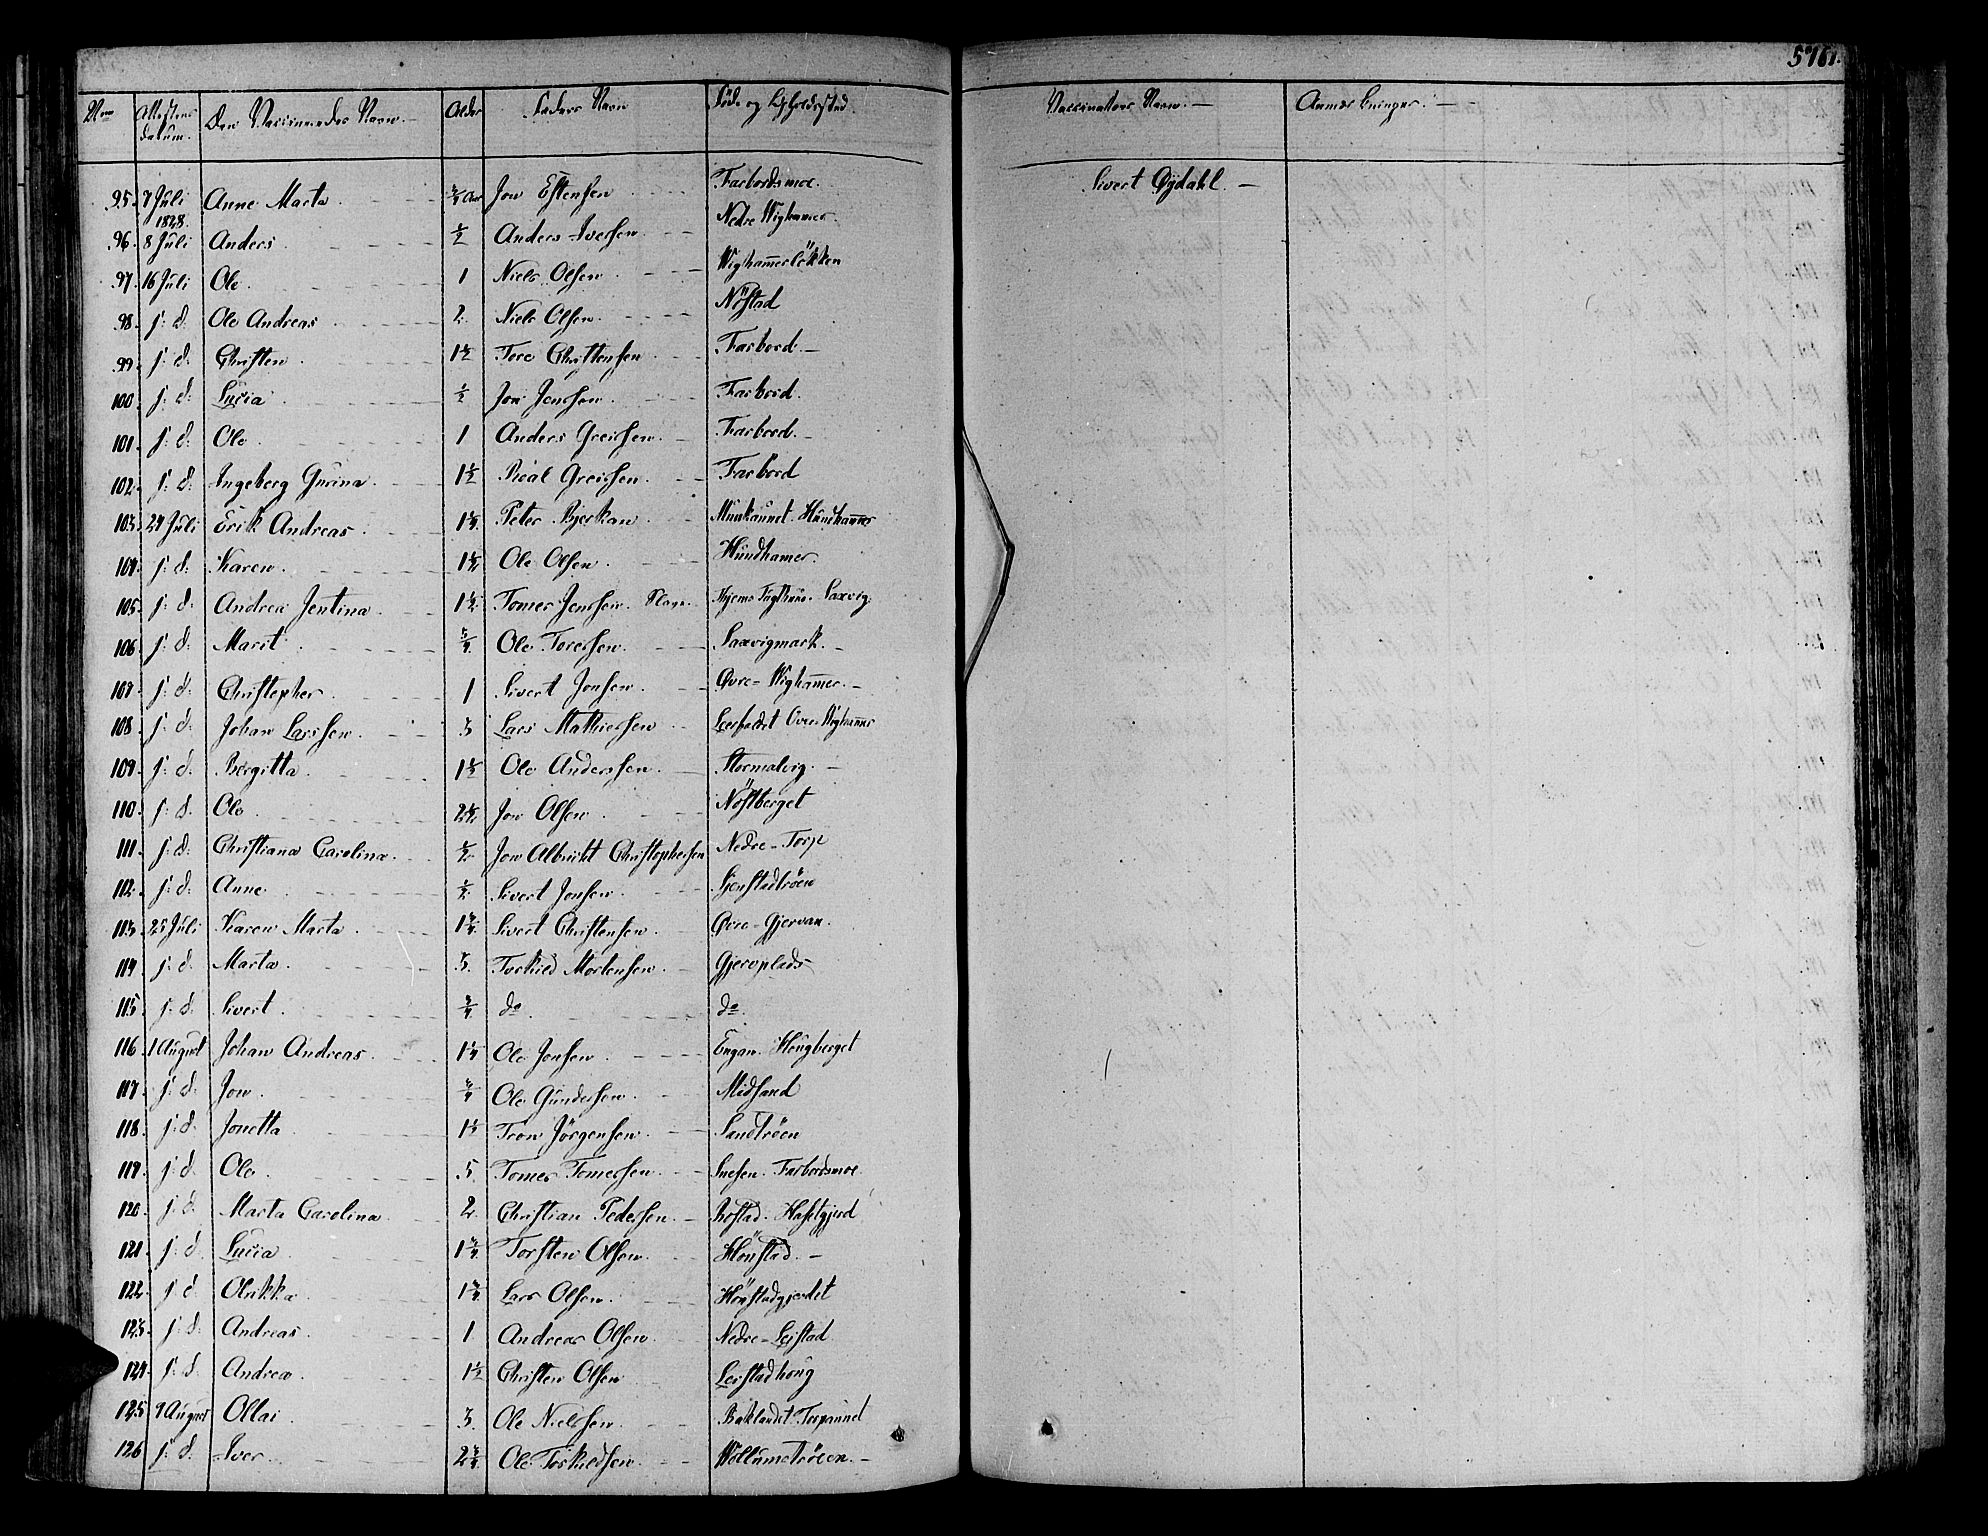 576.
Nro Attestens datum. Den Vaccineredes Navn. Alder Faders Navn Føde og Opholdssted. Vaccinateur Navn. Anmærkninger.
95. 7 Juli 1828. Anne Marta Jon Estensen Farbordsmoe. Sivert Øydahl.
96. 8 Juli Anders. 1/2 Anders Iversen. Nedre Wighamer.
97. 16 Juli Ole. 1 Niels Olsen. Wighamerløkken
98. j: d: Ole Andreas 2. Niels Olsen. Nøstad
99. j: d: Christen 1 1/2 Tore Christensen Farbord.
100. j: d: Lucia 1/2 Jon Jensen. Farbord.
101. j: d: Ole. 1 Anders Greisen. Farbord.
102. j: d: Ingeberg Gurina. 1 1/2 Roal Greisen. Farbord
103. 24 Juli Erik Andreas. 1 1/4 Peter Bjerkan Munkaunet. Hundhamer
104. j: d: Karen. 1 1/2 Ole Olsen. Hundhamer.
105. j: d: Andrea Jentina. 1 1/2 Tomer Jensen. Saxvig
106. j: d: Marit. 3/4 Ole Toresen. Saxvigmark.
107. j: d: Christopher. 1 Sivert Jonsen. Øvre-Wighamer.
108. j: d: Johan Larssen. 3 Lars Mathiesen Øvre-Wighamer
109. j: d: Bergitta. 1 1/2 Ole Andersen. Stormalvig.
110. j: d. Ole. 2 1/2 Jon Olsen. Nøstberget
111. j: d. Christiana Carolina. 1/2 Jon Albricht Christophersen Nedre-Torp
112. j: d. Anne. 1/2 Sivert Jonsen. Sjenstadtrøen
113. 25 Juli Karen Marta 1 3/4 Sivert Christensen. Øvre-Gjervan.
114 j: d. Marta. 3. Torkild Mortensen. Gjervplads
115 j: d: Sivert. 3/4 do. do.
116. 1 August Johan Andreas. 1 1/4 Ole Jonsen. Engan. Hougberget
117. j: d: Jon. 3/4 Ole Gundersen. Midsand
118. j: d: Jonetta. 1 1/2 Tron Jørgensen. Sandtrøen
119. j: d. Ole. 5. Tomer Tomersen. Snesen. Farbordsmoe
120. j: d. Marta Carolina. 2. Christian Pedersen. Rostad. Haselgjerd
121. j: d. Lucia 1 3/4 Torsten Olsen. Hønstad.
122. j: d. Olrikka 1 3/4 Lars Olsen. Hønstadgjerdet
123. j: d: Andreas. 1 Andreas Olsen. Nedre-Leistad
124. j: d. Andrea. 1 1/2 Christen Olsen Leistadhoug
125 9 August Ollai 3. Ole Nielsen. Baklandet. Torpaunet
126 j: d. Iver. 2 3/4 Ole Torkildsen. Wollumstrøeen.